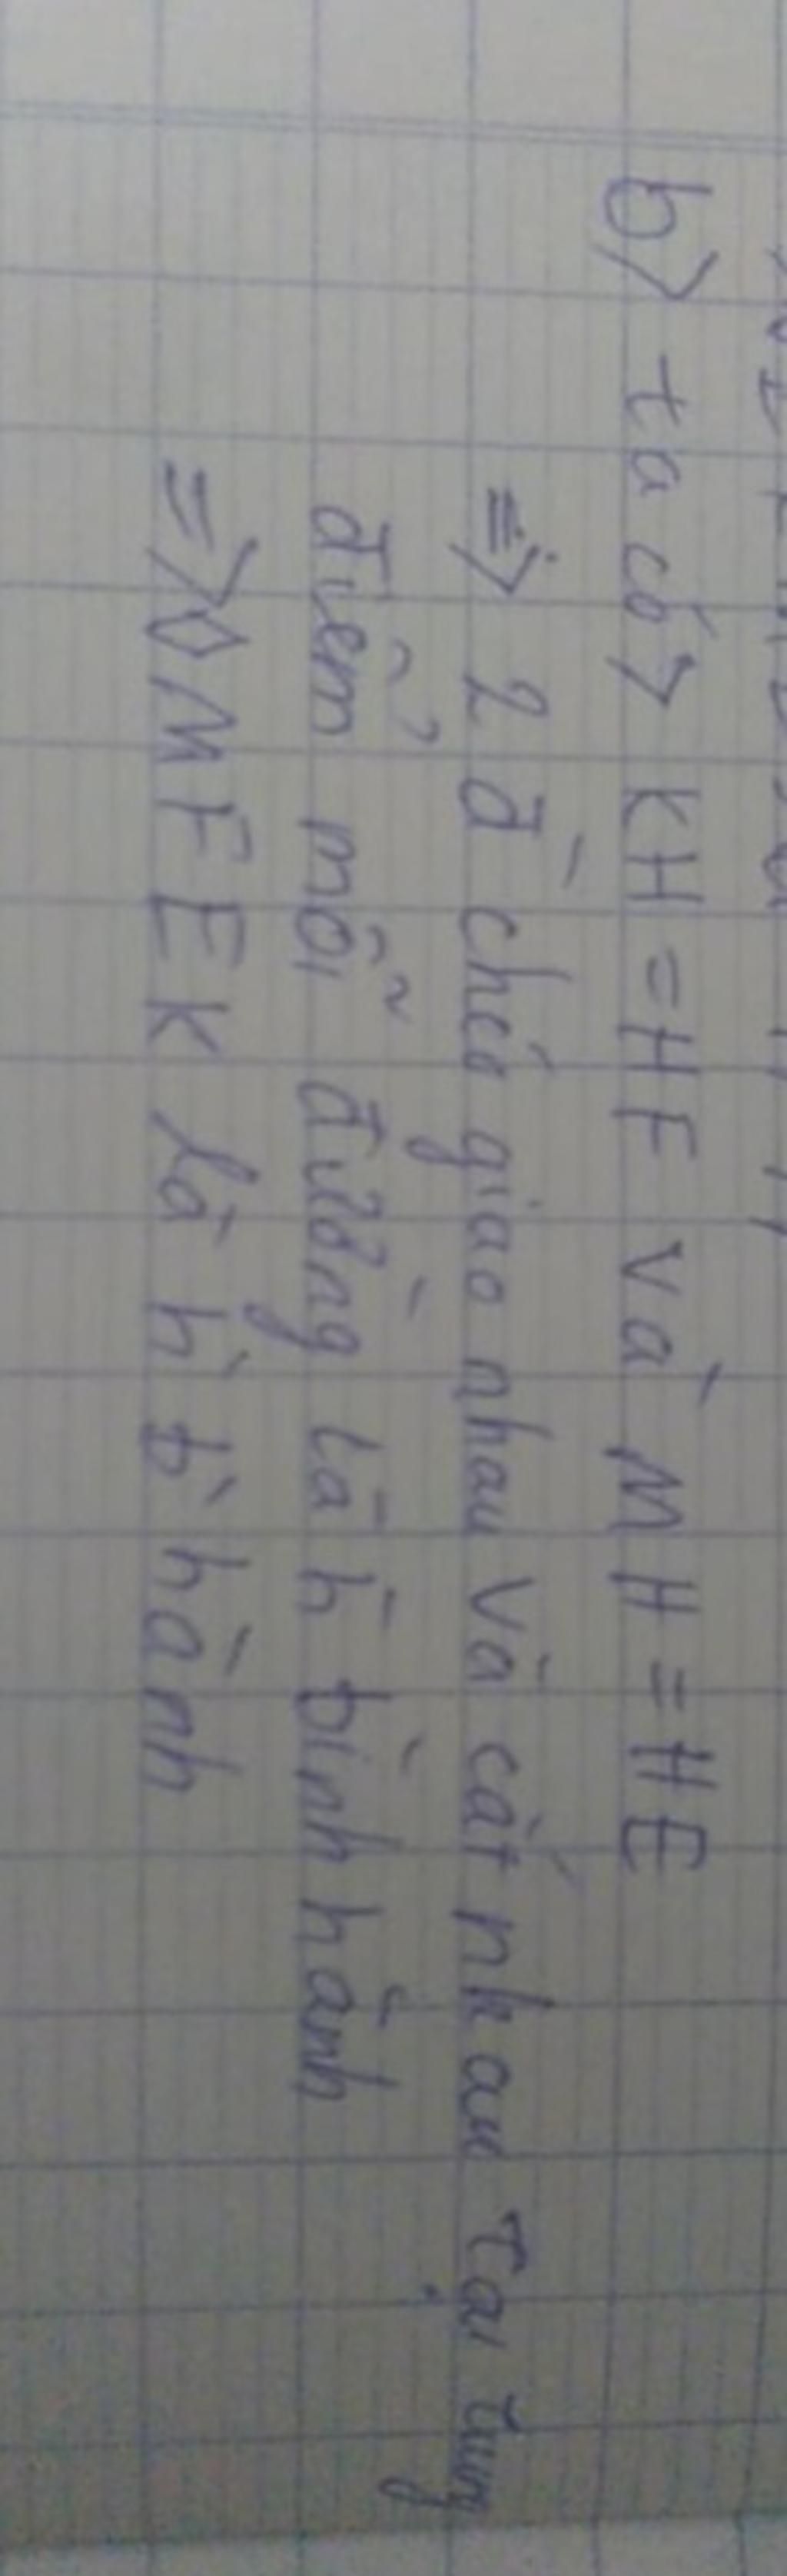 b> ta có> KH = HF và MH = HE
=> 2 đ̀ chéo giao nhau và cắt nhau tại trung
điểm mỗi đường là h̀ bình hành
=> ◊MFEK là h̀ b̀ hành